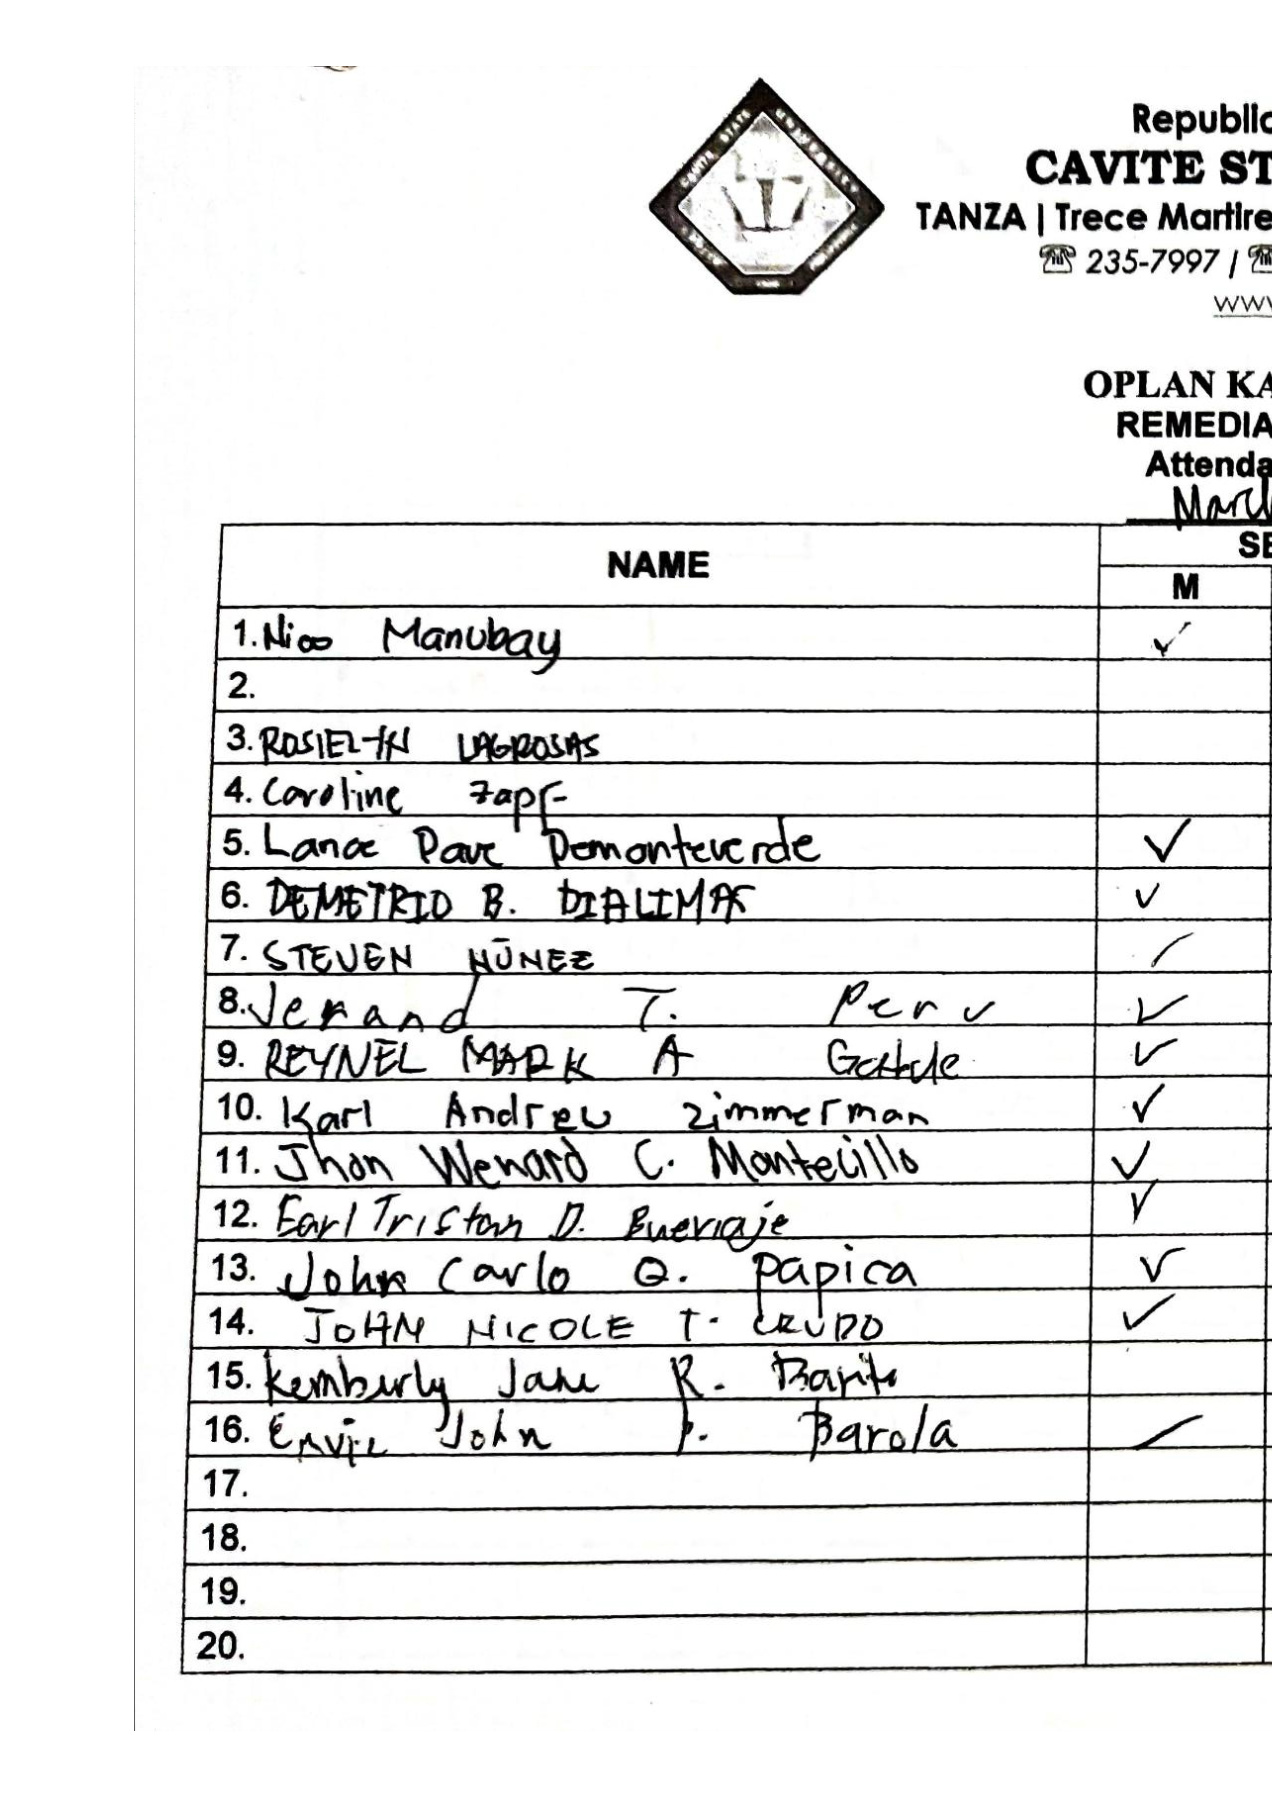 Republic
CAVITE ST
TANZA | Trece Martire
☏ 235-7997 / ☏
www
OPLAN KA
REMEDIA
Attenda
March
NAME SE
M
1. Nico Manubay ✓
2.
3. ROSIELYN LAGROSAS
4. Caroline Zapf
5. Lance Dave Demonteverde ✓
6. DEMETRIO B. DIALIMAS ✓
7. STEVEN NŪNEZ
8. Jerand T. Peru ✓
9. REYNEL MARK A ✓
10. Karl Andrew Zimmerman ✓
11. Jhon Wenard C. Montecillo ✓
12. Earl Tristan D. ✓
13. John Carlo Q. Papica ✓
14. JOHN NICOLE T. CRUDO ✓
15. Kemberly Jane R.
16. John P. Barola
17.
18.
19.
20.